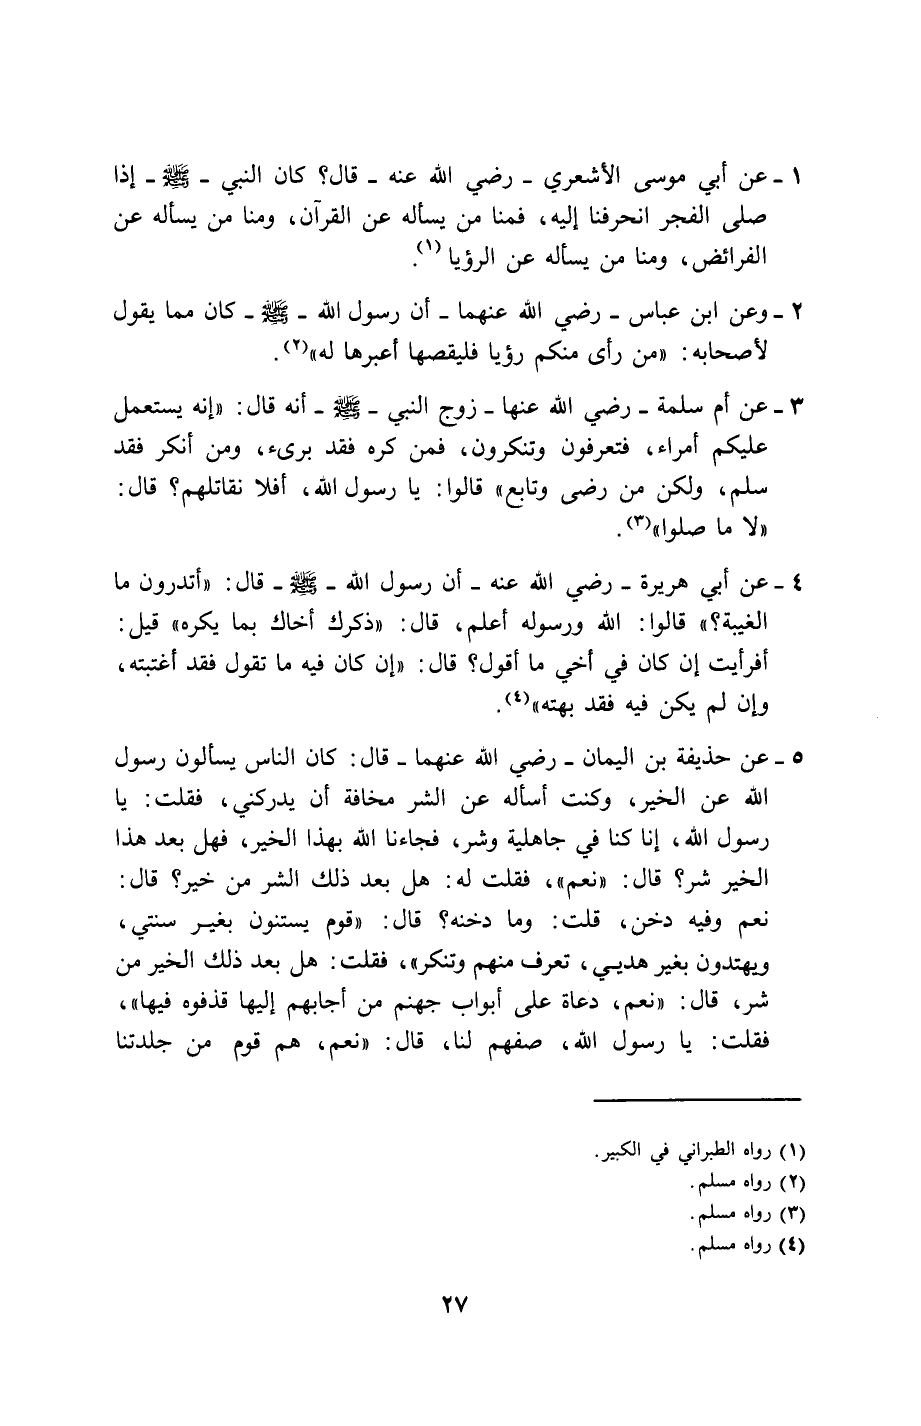 ١ ـ عن أبي موسى الأشعري ـ رضي الله عنه ـ قال؟ كان النبي ـ ﷺ ـ إذا
صلى الفجر انحرفنا إليه، فمنا من يسأله عن القرآن، ومنا من يسأله عن
الفرائض، ومنا من يسأله عن الرؤيا (١).
٢ ـ وعن ابن عباس ـ رضي الله عنهما ـ أن رسول الله ـ ﷺ ـ كان مما يقول
لأصحابه: «من رأى منكم رؤيا فليقصها أعبرها له»(٢).
٣ ـ عن أم سلمة ـ رضي الله عنها ـ زوج النبي ـ ﷺ ـ أنه قال: «إنه يستعمل
عليكم أمراء، فتعرفون وتنكرون، فمن كره فقد برىء، ومن أنكر فقد
سلم، ولكن من رضى وتابع» قالوا: يا رسول الله، أفلا نقاتلهم؟ قال:
«لا ما صلوا»(٣).
٤ ـ عن أبي هريرة ـ رضي الله عنه ـ أن رسول الله ـ ﷺ ـ قال: «أتدرون ما
الغيبة؟» قالوا: الله ورسوله أعلم، قال: «ذكرك أخاك بما يكره» قيل:
أفرأيت إن كان في أخي ما أقول؟ قال: «إن كان فيه ما تقول فقد أغتبته،
وإن لم يكن فيه فقد بهته»(٤).
٥ ـ عن حذيفة بن اليمان ـ رضي الله عنهما ـ قال: كان الناس يسألون رسول
الله عن الخير، وكنت أسأله عن الشر مخافة أن يدركني، فقلت: يا
رسول الله، إنا كنا في جاهلية وشر، فجاءنا الله بهذا الخير، فهل بعد هذا
الخير شر؟ قال: «نعم»، فقلت له: هل بعد ذلك الشر من خير؟ قال:
نعم وفيه دخن، قلت: وما دخنه؟ قال: «قوم يستنون بغير سنتي،
ويهتدون بغير هديي، تعرف منهم وتنكر»، فقلت: هل بعد ذلك الخير من
شر، قال: «نعم، دعاة على أبواب جهنم من أجابهم إليها قذفوه فيها»،
فقلت: يا رسول الله، صفهم لنا، قال: «نعم، هم قوم من جلدتنا
(١) رواه الطبراني في الكبير.
(٢) رواه مسلم.
(٣) رواه مسلم.
(٤) رواه مسلم.
٢٧